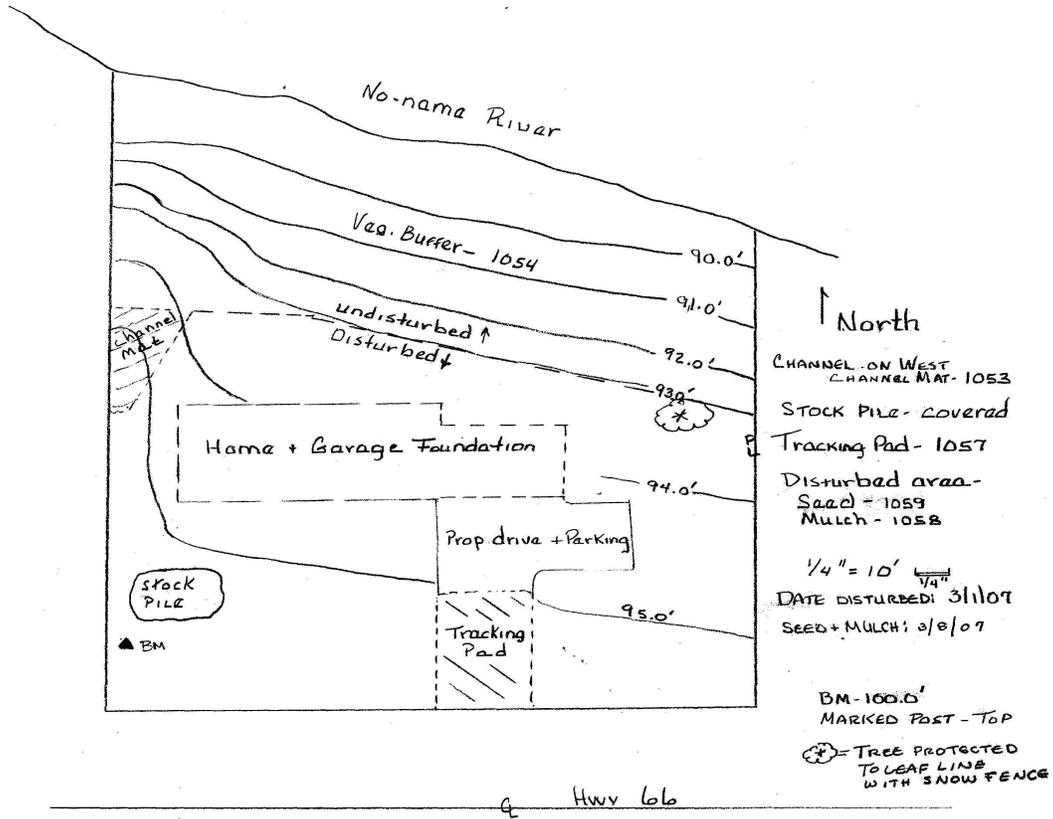 No-name River
Veg. Buffer - 1054
90.0'
91.0'
undisturbed ↑
Disturbed ↓
92.0'
93.0'
Channel
Mat
Home + Garage Foundation
94.0'
Prop drive + Parking
STOCK
PILE
BM
Tracking
Pad
95.0'
Hwy 66
North
CHANNEL ON WEST
CHANNEL MAT - 1053
STOCK PILE - covered
PL
Tracking Pad - 1057
Disturbed area -
Seed - 1059
Mulch - 1058
1/4" = 10'
1/4"
DATE DISTURBED: 3/1/07
SEED + MULCH: 3/8/07
BM - 100.0'
MARKED POST - TOP
= TREE PROTECTED
TO LEAF LINE
WITH SNOW FENCE
CL